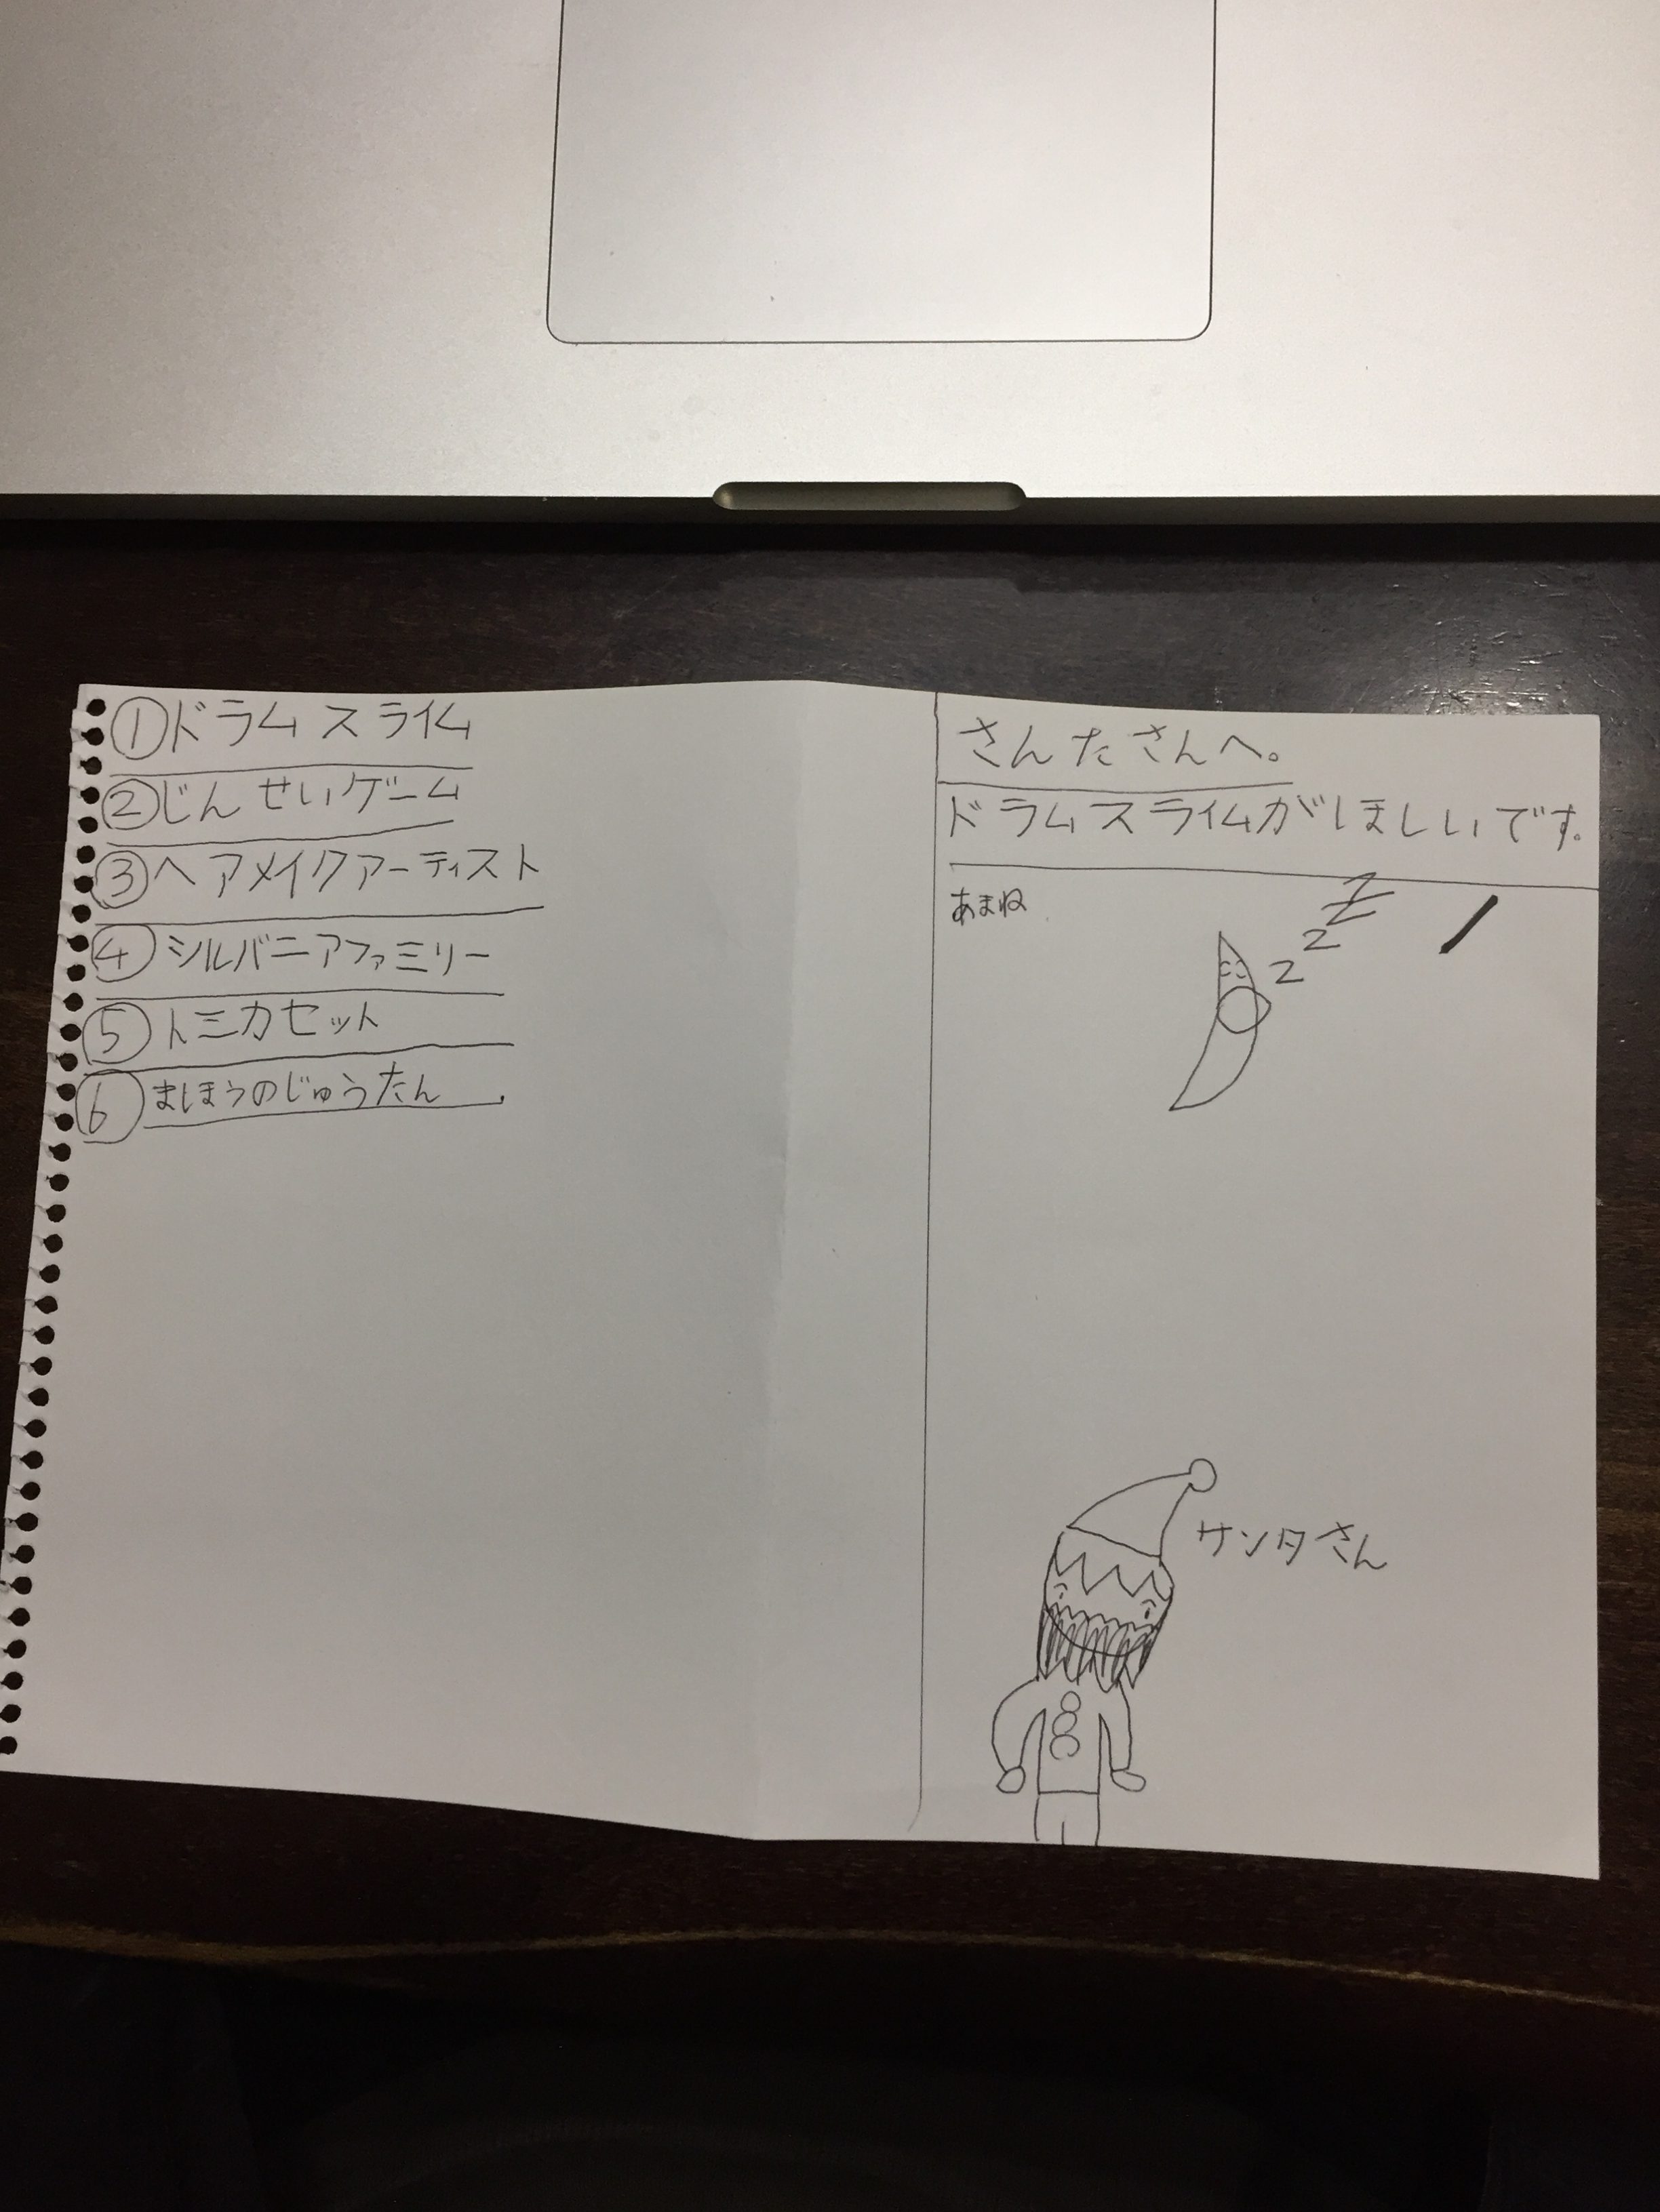 ①ドラムスライム
②じんせいゲーム
③ヘアメイクアーティスト
④シルバニアファミリー
⑤トミカセット
⑥まほうのじゅうたん
さんたさんへ。
ドラムスライムがほしいです。
あまね
zzzz
サンタさん